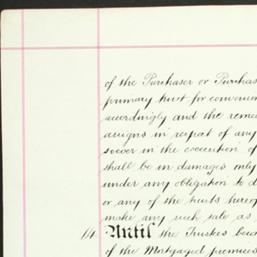 of the Purchaser or Purchas
primary trust for conversion
accordingly and the remed
assigns in respect of any
soever in the execution of
shall be in damages only
under any obligation to d
or any of the trusts hereof
make any such sale as
14. Until the Trustees beco
of the Mortgaged premises